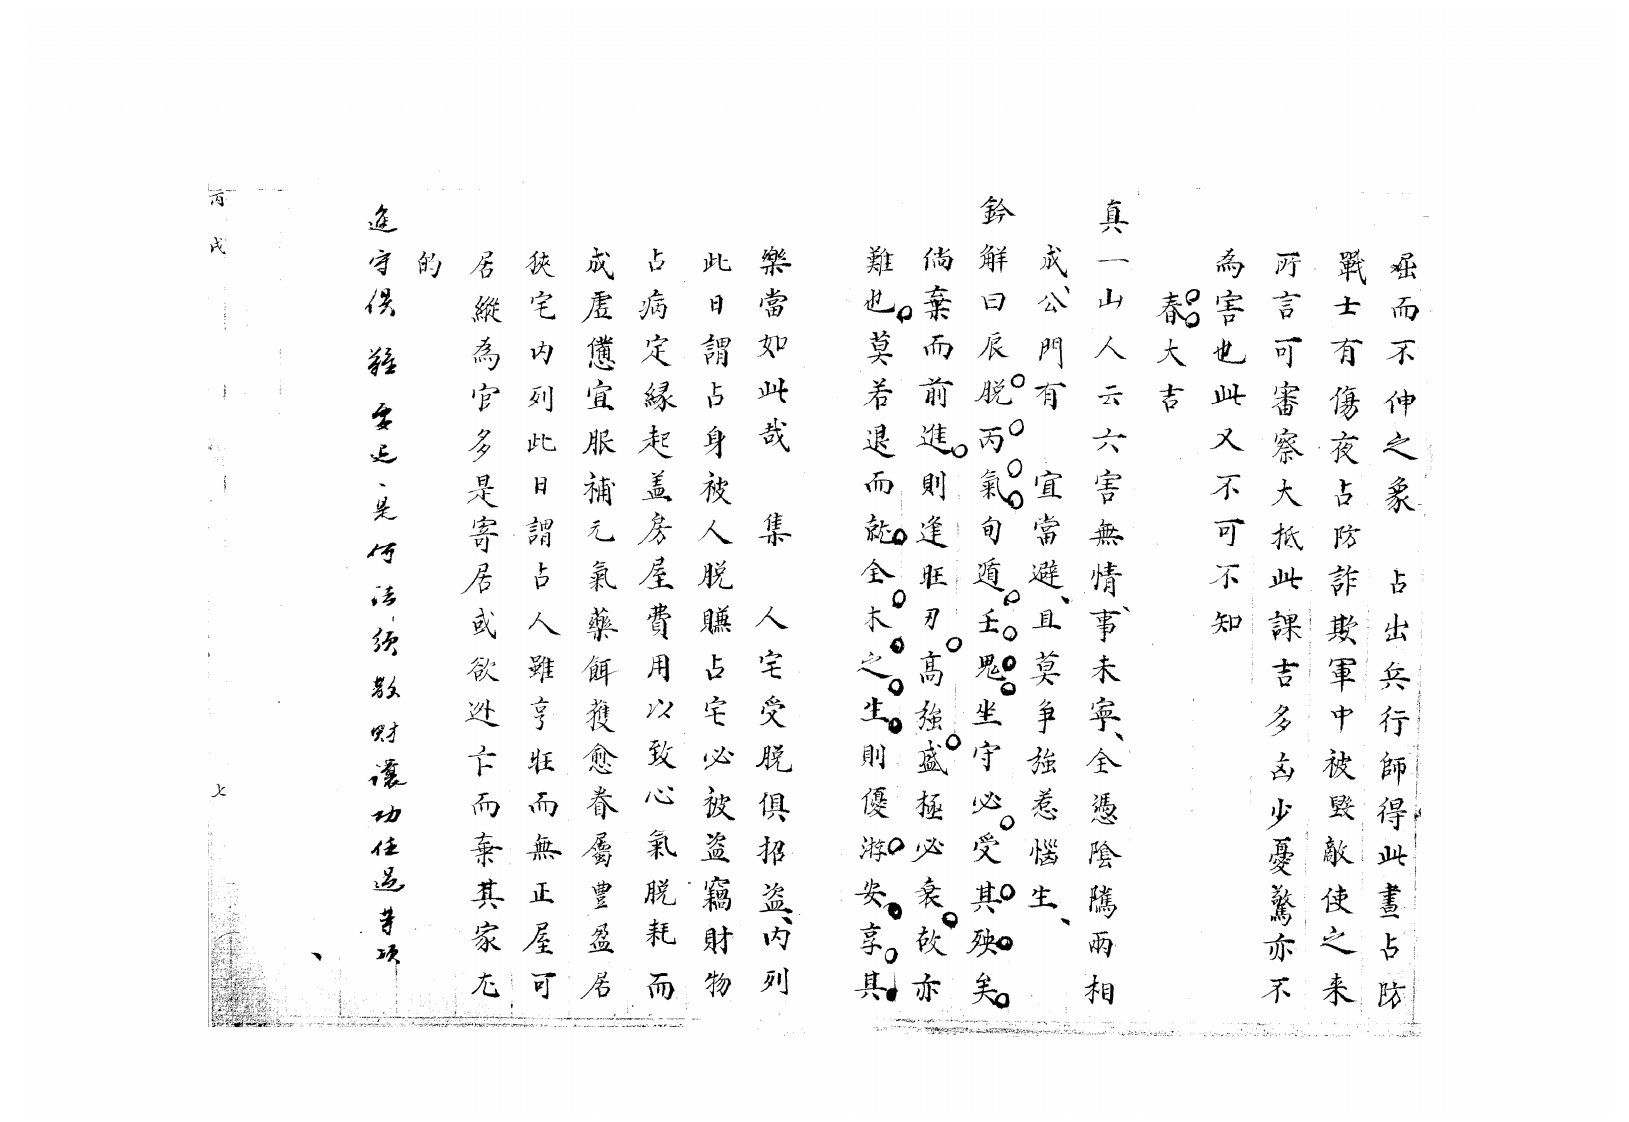 屈而不伸之象　占出兵行師得此晝占防
戰士有傷夜占防詐欺軍中被毀敵使之来
所言可審察大抵此課吉多凶少憂驚亦不
為害也此又不可不知
春大吉
真一山人云六害無情、事未寧、全憑陰隲兩相
成、公門有　宜當避、且莫爭強惹惱生、
鈐解曰辰脱丙氣旬遁壬鬼坐守必受其殃矣
倘棄而前進則逢旺刃高強盛極必衰故亦
難也莫若退而就全木之生則優游安享其
樂當如此哉　集　人宅受脱俱招盜、内列
此日謂占身被人脱賺占宅必被盜竊財物
占病定緣起盖房屋費用以致心氣脱耗而
成虛憊宜服補元氣藥餌獲愈眷屬豊盈居
狹宅内列此日謂占人雖亨旺而無正屋可
居縱為官多是寄居或欲逃亡而棄其家尤
的
進守俱難要退、是何法、須散財讓功任過等項
丙戌　七